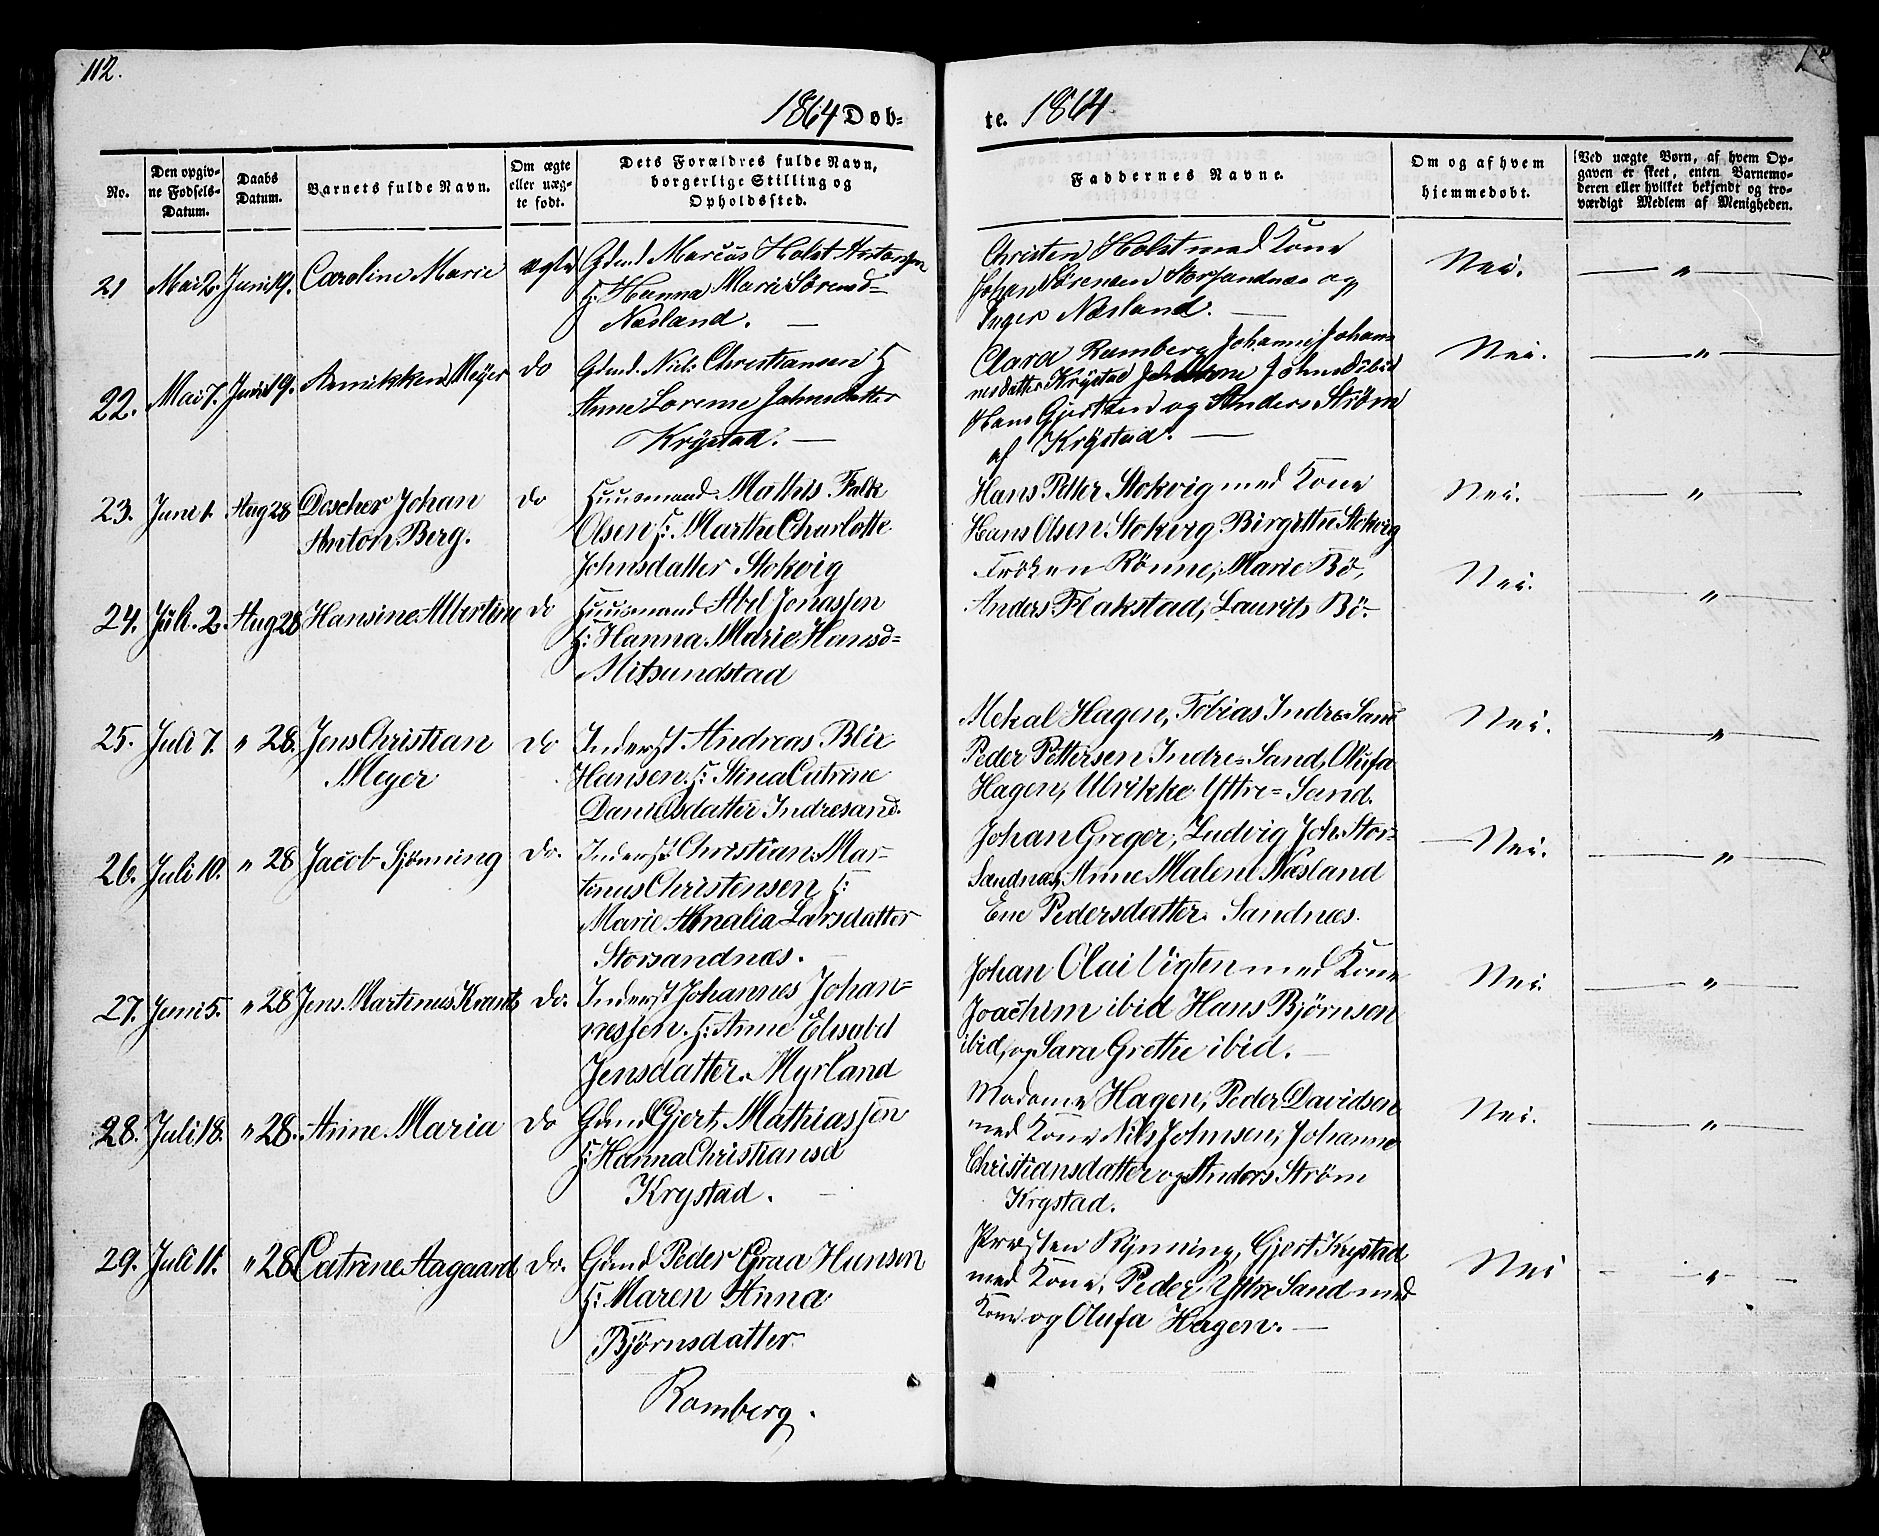 112.
1864 Døb-
te. 1864.
No.
Den opgiv-
ne Fødsels-
Datum.
Daabs
Datum.
Barnets fulde Navn.
Om ægte
eller uæg-
te født.
Dets Forældres fulde Navn,
borgerlige Stilling og
Opholdssted.
Faddernes Navne.
Om og af hvem
hjemmedøbt.
Ved uægte Børn, af hvem Op-
gaven er skeet, enten Barnemo-
deren eller hvilket bekjendt og tro-
værdigt Medlem af Menigheden.
21 Mai 2. Juni 19. Caroline Marie ægte Gdmd Marcus Holst Antonsen
H: Hanna Marie Sørensd-
Næsland. —
Christen Holst med Kone
Johan Sørensen Storsandnæs og
Inger Næsland. —
Nei. — " —
22. Mai 7. Juni 19. Annikken Meÿer do Gdmd. Niels Christiansen H
Anne Lorense Jahnsdatter
Krÿstad. —
Clara Ramberg Johanne Johan-
nesdatter Krÿstad Johnsd ibid
Hans Gjertsen og Anders Strøm
af Krÿstad. —
Nei. — " —
23. Juni 1. Aug 28 Doscher Johan
Anton Berg.
do Huusmand Mathis Falk
Olsen H: Marthe Charlotte
Johnsdatter Stokvig
Hans Petter Stokvig med Kone
Hans Olsen Stokvig Birgithe Stokvig
Nei. — " —
24. Juli 2. Aug 28 Hansine Albertine do Huusmand Abel Jonassen
H: Hanna Marie Hansd-
Mitsundstad
Frøken Rønne, Marie Bø,
Anders Flakstad, Laurits Bø-
Nei. — " —
25. Juli 7. " 28. Jens Christian
Meyer
do Inderst Andreas Blix
Hansen H: Stina Catrine
Danielsdatter Indresand.
Mekal Hagen, Tobias Indre-Sand
Peder Pettersen Indre-Sand, Olufa
Hagen, Ulrikke Yttre-Sand.
Nei. — " —
26. Juli 10. " 28 Jacob Sjønning do. Inderst Christian Mar-
tenus Christensen H:
Marie Amalia Larsdatter
Storsandnæs. —
Johan Greger, Ludvig Joh. Stor-
Sandnæs, Anne Malene Næsland
Ene Pedersdatter Sandnæs.
— Nei. — " —
27. Juni 5. " 28 Jens Martinus Krants do. Inderst Johannes Johan-
nessen. H: Anne Elisabet
Jensdatter Myrland
Johan Olai Vigten med Kone
Joachim ibid Hans Bjørnson
ibid, og Sara Grethe ibid. —
Nei. — " —
28. Juli 18. " 28. Anne Maria do Gdmd Gjert Mathiassen
H: Hanna Christiansd
Krystad. —
Madame Hagen, Peder Davidsen
med Kone Nils Johnsen, Johanne
Christiansdatter og Anders Strøm
Krystad.
Nei. — " —
29. Juli 11. " 28 Catrine Aagaard do. Gdmd Peder Graa Hansen
H: Maren Anna
Bjørnsdatter
Ramberg.
Præsten Rÿnning, Gjert Krystad
med Kone, Peder Yttre Sand med
Kone og Olufa Hagen. —
Nei — " —